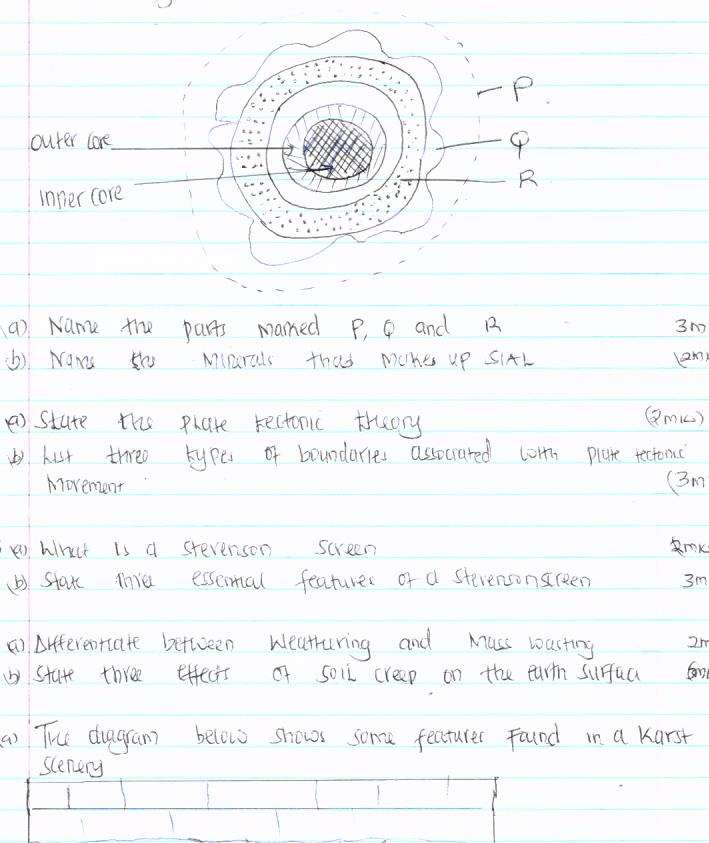 P
outer core
Q
R
inner core
(a) Name the parts marked P, Q and R 3m
(b) Name the Minerals that makes up SIAL (2mk
(a) State the plate tectonic theory (2mks)
(b) List three types of boundaries associated with plate tectonic
Movement (3m
(a) What is a stevenson screen 2mks
(b) State three essential features of a stevenson screen 3m
(a) Differentiate between Weathering and Mass wasting 2m
(b) State three effects of soil creep on the earth surface 3mk
(a) The diagram below shows some features found in a Karst
scenery